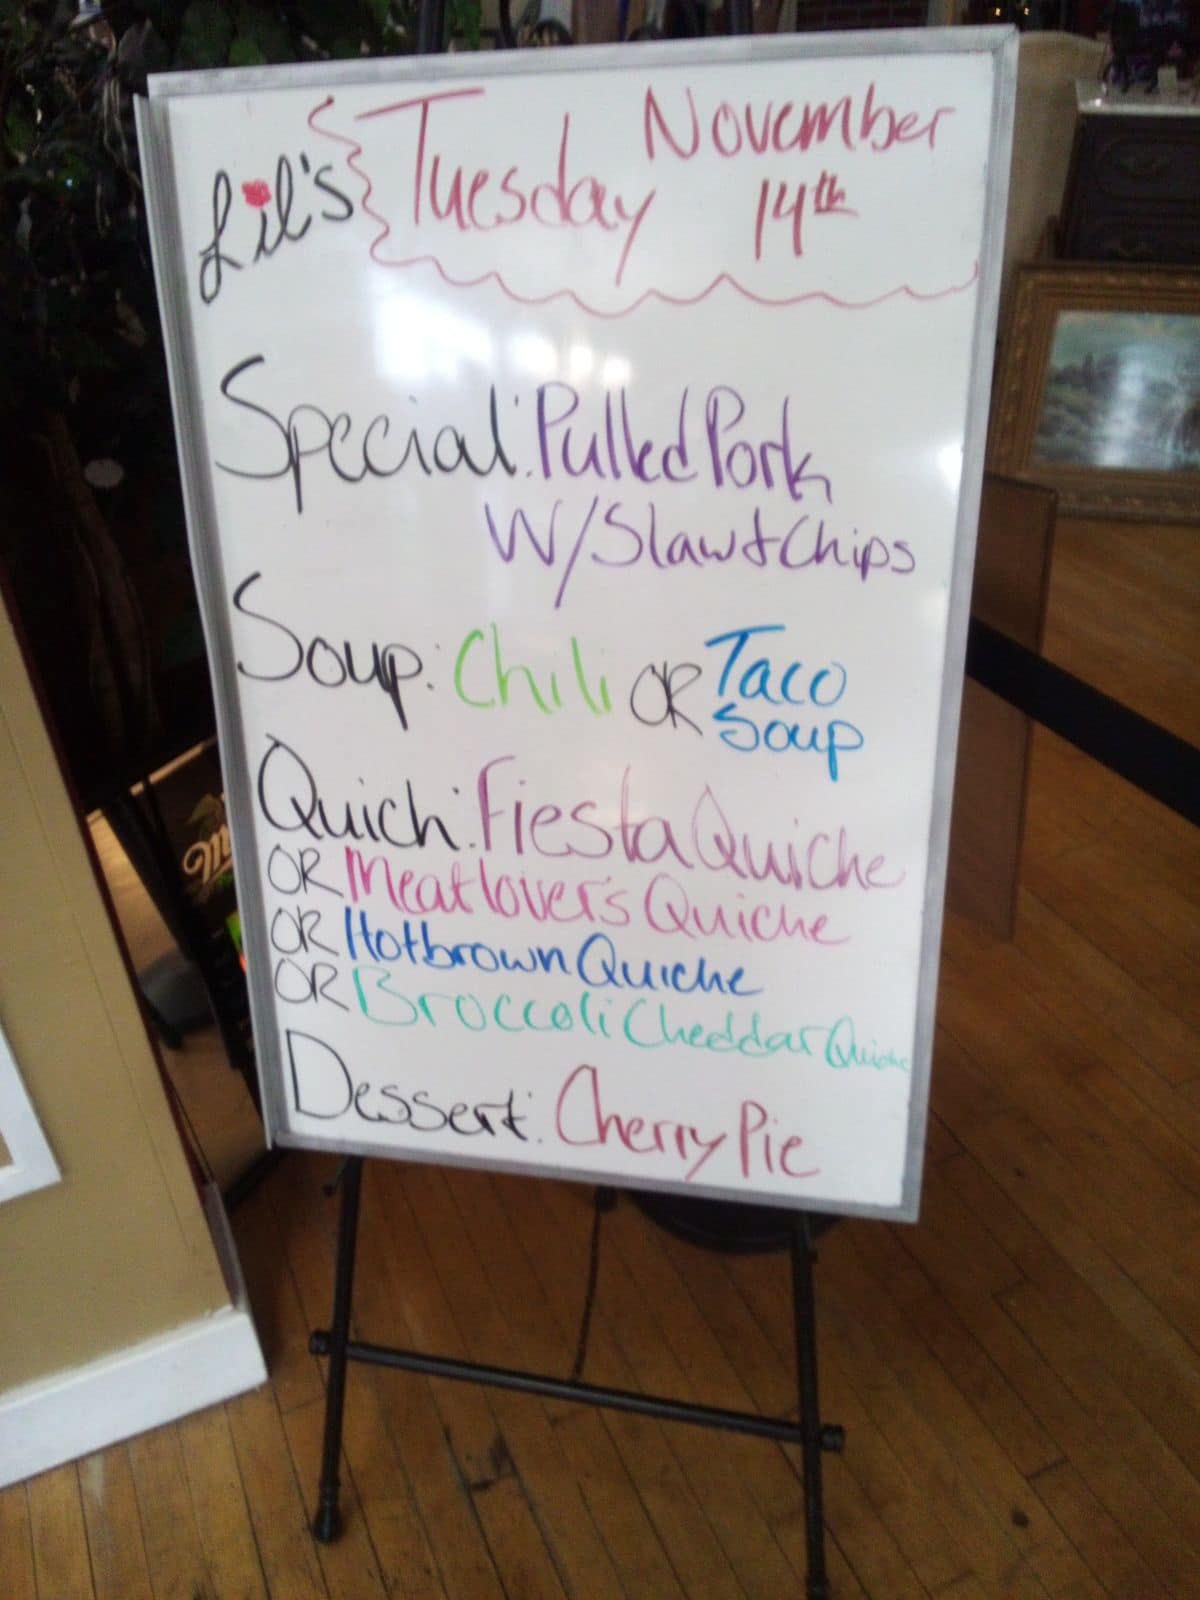 Lil's Tuesday November
14th
Special: Pulled Pork
W/ Slaw & Chips
Soup: Chili OR Taco
Soup
Quich: Fiesta Quiche
OR Meatlover's Quiche
OR Hotbrown Quiche
OR Broccoli Cheddar Quiche
Dessert: Cherry Pie